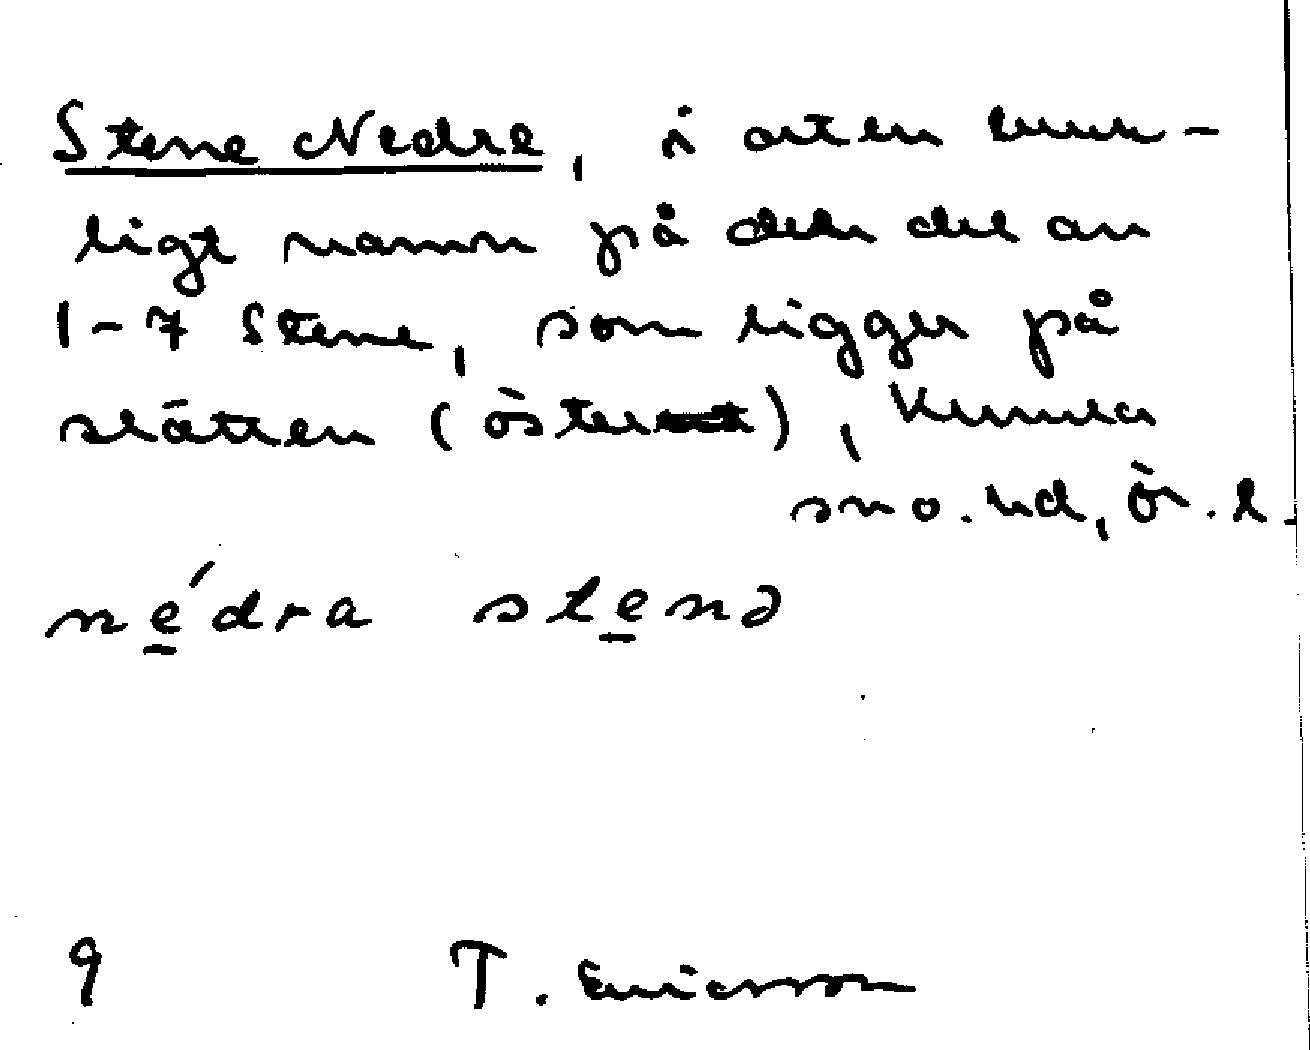 Stene Nedre, i orten bruk-
ligt namn på den del av
1-7 Stene, som ligger på
slätten (öster), Kumla
sn o. hd, Ör. l.
nédra stenə
9 T. Ericsson